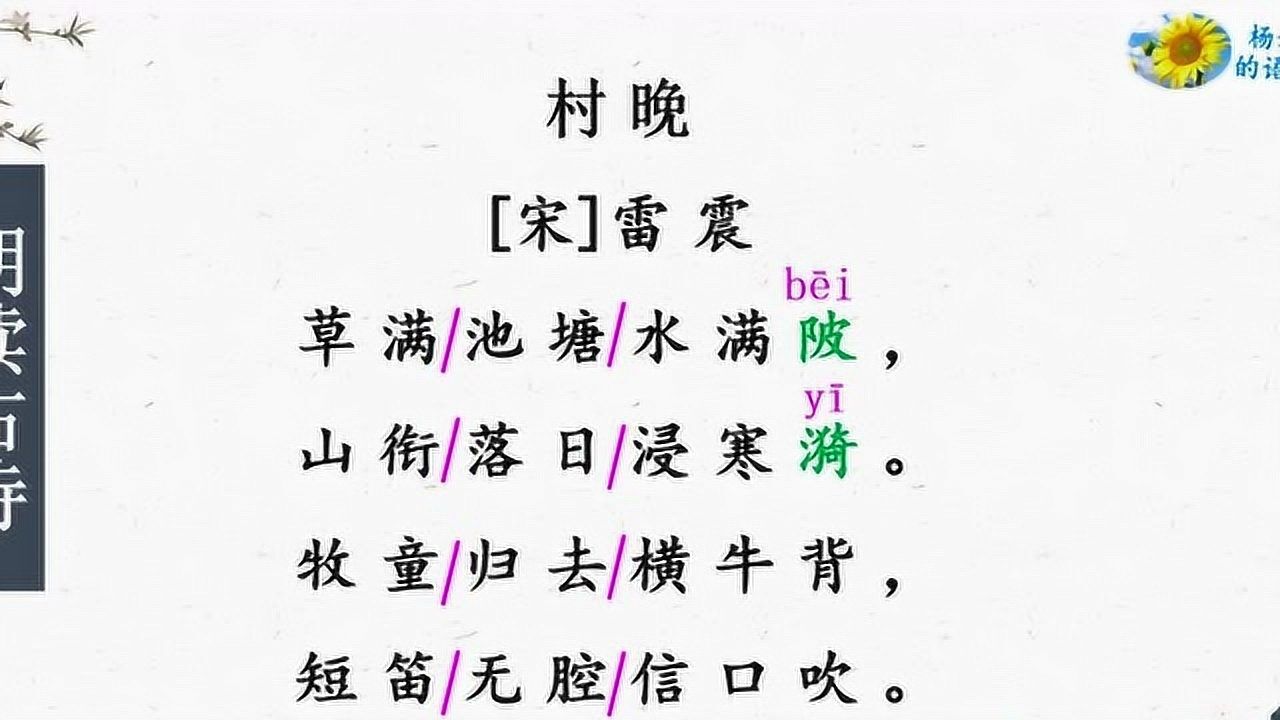 村晚
[宋]雷震
bēi
草满/池塘/水满陂，
yī
山衔/落日/浸寒漪。
牧童/归去/横牛背，
短笛/无腔/信口吹。
朗读古诗
杨
的语